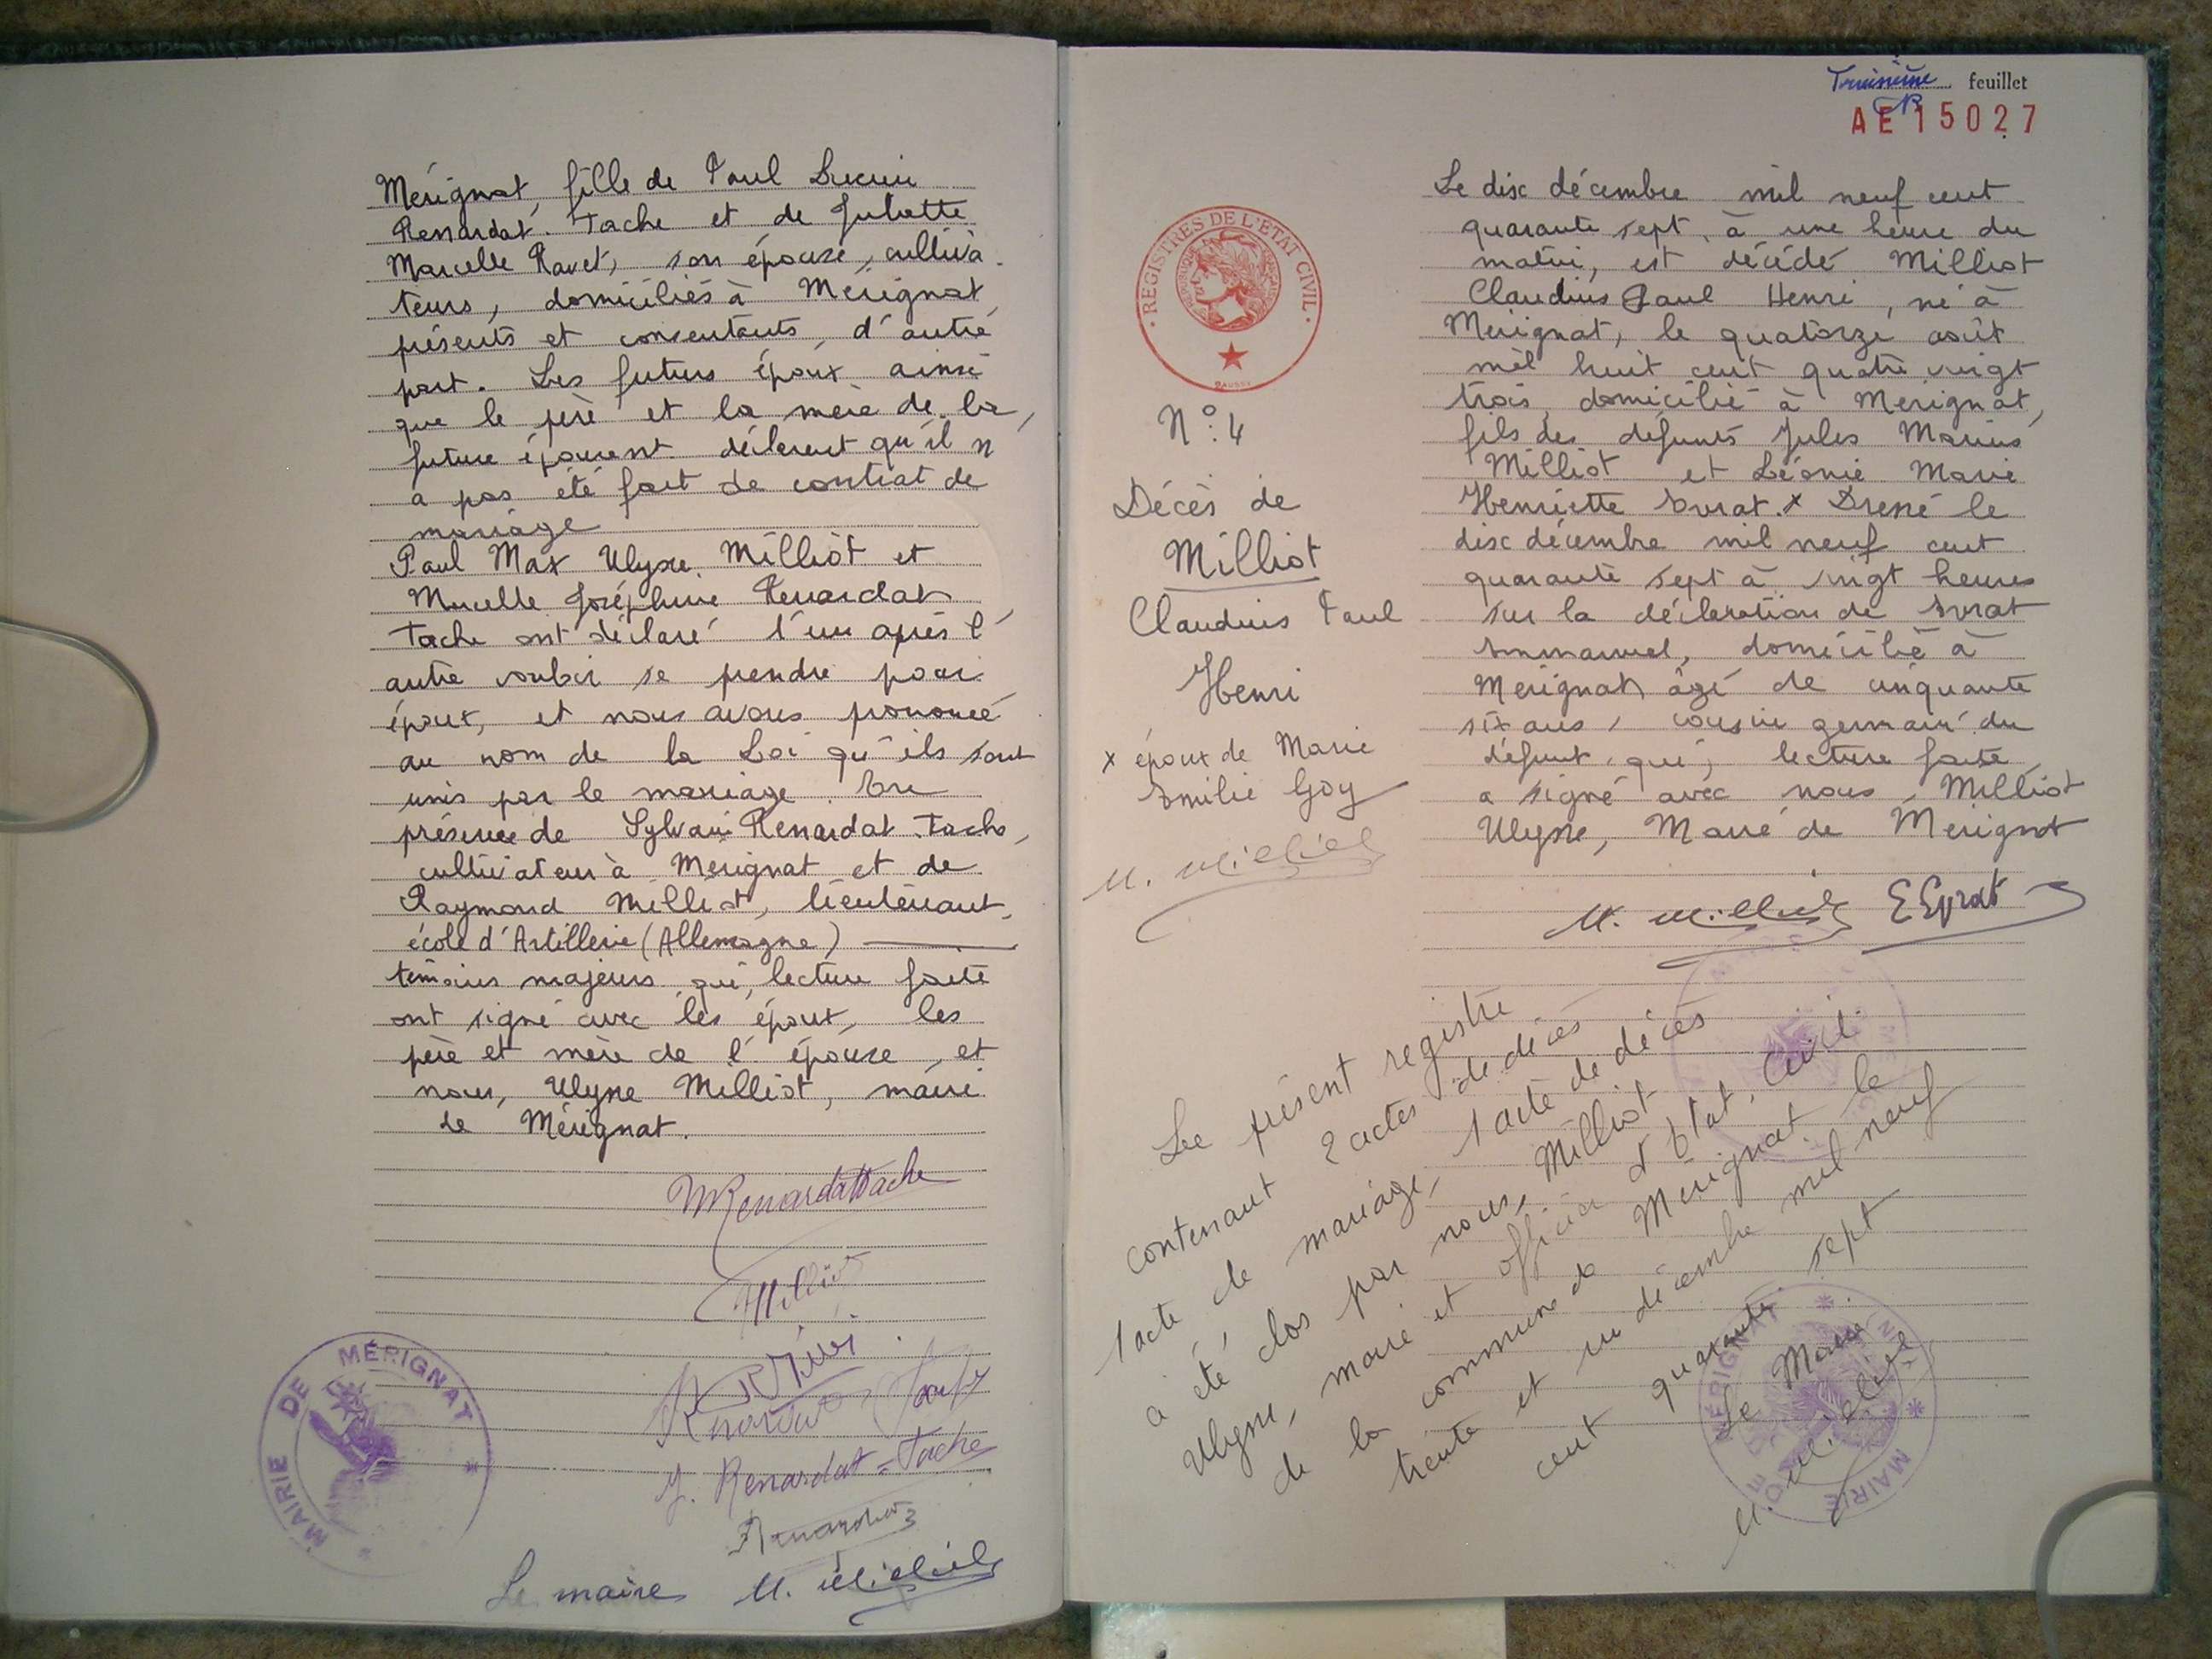 Mérignat, fille de Paul Lucien
Renardat-Tache et de Juliette
Marcelle Ravet, son épouse, cultiva-
teurs, domiciliés à Mérignat,
présents et consentants, d'autre
part. Les futurs époux ainsi
que le père et la mère de la
future épouse déclarent qu'il n'
a pas été fait de contrat de
mariage
Paul Max Ulysse Milliat et
Marcelle Joséphine Renardat
Tache ont déclaré l'un après l'
autre vouloir se prendre pour
époux, et nous avons prononcé
au nom de la Loi qu'ils sont
unis par le mariage. En
présence de Sylvain Renardat-Tache,
cultivateur à Mérignat et de
Raymond Milliat, lieutenant,
école d'Artillerie (Allemagne)
témoins majeurs qui, lecture faite
ont signé avec les époux, les
père et mère de l'épouse, et
nous, Ulysse Milliat, maire
de Mérignat.
MRenardatTache
Milliat
J. Renardat-Tache
Le maire U. Milliat
MAIRIE DE MÉRIGNAT
Troisième feuillet
AE15027
REGISTRES DE L'ÉTAT CIVIL
N° 4
Décès de
Milliat
Claudius Paul
Henri
x époux de Marie
Emilie Goy
U. Milliat
Le dix décembre mil neuf cent
quarante sept, à une heure du
matin, est décédé Milliat
Claudius Paul Henri, né à
Mérignat, le quatorze août
mil huit cent quatre vingt
trois, domicilié à Mérignat,
fils des défunts Jules Marius
Milliat et Léonie Marie
Henriette Eyrat. x Dressé le
dix décembre mil neuf cent
quarante sept à vingt heures
sur la déclaration de Eyrat
Emmanuel, domicilié à
Mérignat âgé de cinquante
six ans, cousin germain du
défunt, qui, lecture faite
a signé avec nous, Milliat
Ulysse, Maire de Mérignat
U. Milliat E Eyrat
Le présent registre
contenant 2 actes de décès
1 acte de mariage, 1 acte de décès
a été clos par nous, Milliat
Ulysse, maire et officier d'Etat-Civil
de la commune de Mérignat le
trente et un décembre mil neuf
cent quarante sept
Le Maire
U. Milliat
MAIRIE DE MÉRIGNAT